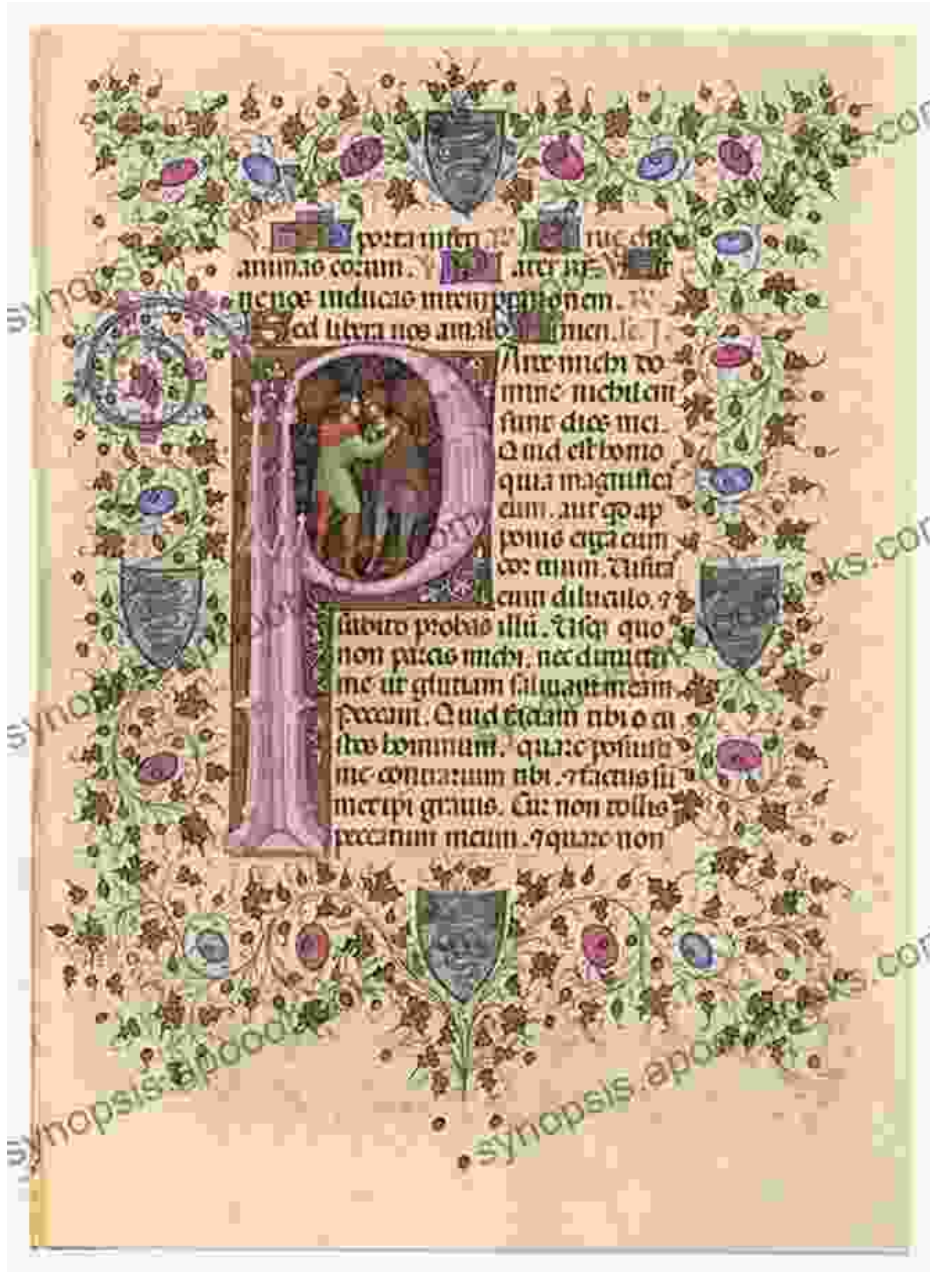 porta inferi
animas eorum.
ne nos inducas in temptationem.
Sed libera nos a malo men.
Parce michi do
mine nichil eni
sunt dies mei.
Quid est homo
quia magnifica
eum. aut ap
ponis erga eum
cor tuum. Visita
eum diluculo. ⁊
subito probas illū. Usq quo
non parcis michi. nec dimittis
me ut glutiam saliuam meam.
Peccaui. Quid faciam tibi o cu
stos hominum. quare posuisti
me contrarium tibi. ⁊ factus sū
metipi grauis. Cur non tollis
peccatum meum. ⁊ quare non